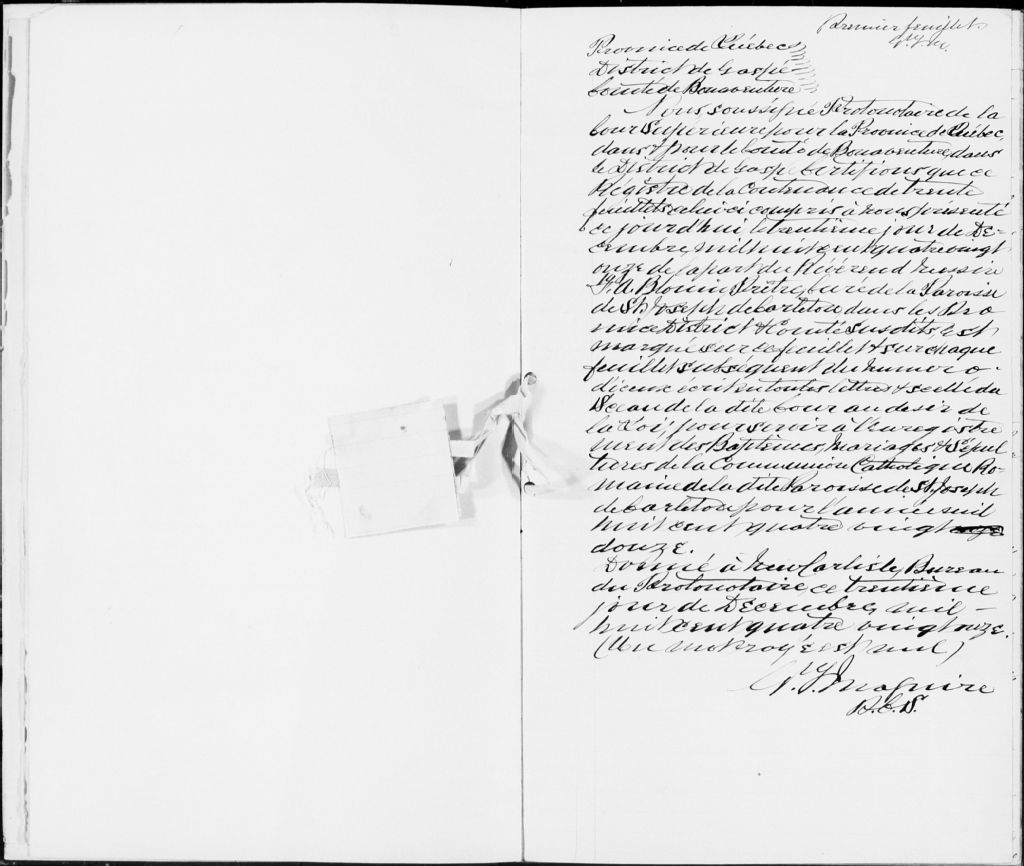 Premier feuillet.
Province de Québec
District de Gaspé
Comté de Bonaventure
Nous, soussigné Protonotaire de la
Cour Superieure pour la Province de Québec,
dans & pour le Comté de Bonaventure, dans
le District de Gaspé Certifions que ce
Régistre de la Contenance de trente
feuillets celui ci compris à nous présenté
ce jourdhui le trentième jour de Dé-
cembre, mil huit cent quatre vingt
onze de la part du Révérend Messire
A. Blouin Prêtre, Curé de la Paroisse
de St. Joseph de Carleton dans les Pro
vince District & Comté susdits, est
marqué sur ce feuillet & sur chaque
feuillet subséquent du numéro
d'iceux écrit en toutes lettres & scellé du
Sceau de la dite Cour au desir de
la Loi, pour servir à l'enregistre
ment des Baptêmes, Mariages & Sépul
tures de la Communion Catholique Ro-
maine de la dite Paroisse de St. Joseph
de Carleton pour l'année mil
huit cent quatre vingt
douze.
Donné à New Carlisle, Bureau
du Protonotaire, ce trentième
jour de Décembre, mil
huit cent quatre vingt onze.
(Un mot rayé est nul)
Maguire
P.C.S.